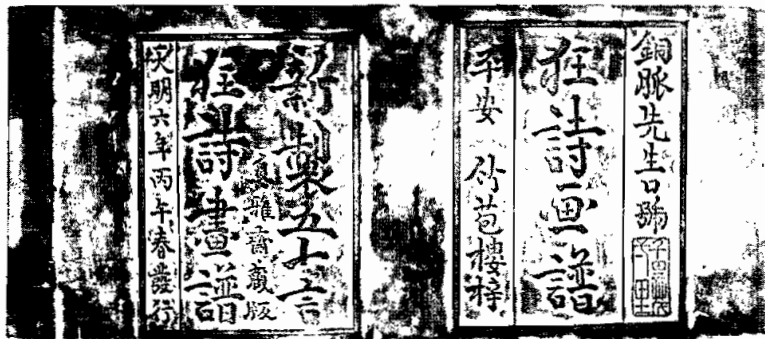 銅脈先生口號
狂詩画譜
平安 竹苞樓梓
新製五七言
雅齋蔵版
狂詩畫譜
天明六年丙午春發行